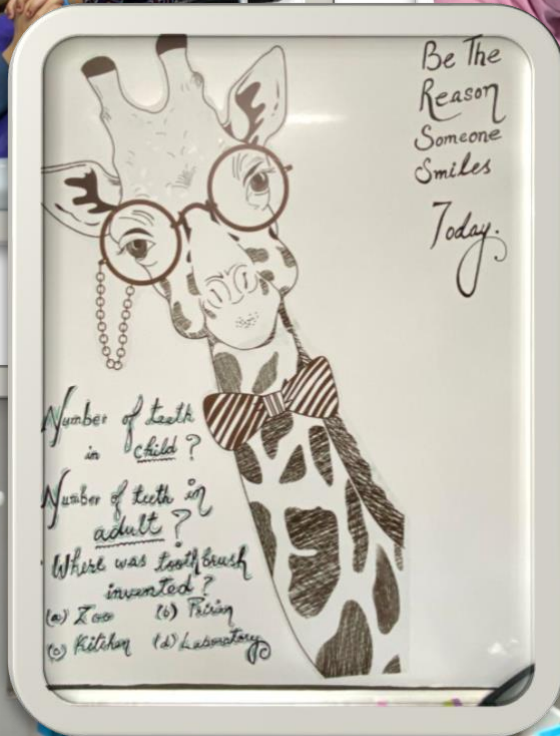 Be The
Reason
Someone
Smiles
Today.
Number of teeth
in child ?
Number of teeth in
adult ?
Where was toothbrush
invented ?
(a) Zoo (b) Prison
(c) Kitchen (d) Laboratory